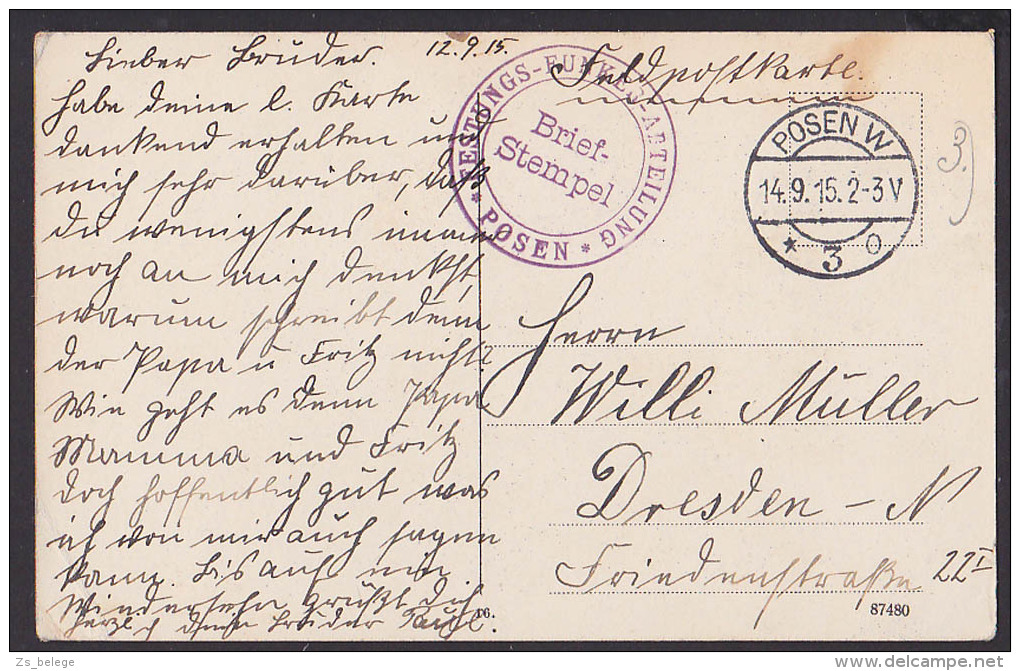 12.9.15.
Lieber Bruder.
habe deine l. Karte
dankend erhalten und
mich sehr darüber, daß
du wenigstens immer
noch an mich denkst,
warum schreibt denn
der Papa u Fritz nicht?
Wie geht es denn Papa
Mamma und Fritz
doch hoffentlich gut was
ich von mir auch sagen
kann. Bis auf ein
Wiedersehn grüßt dich
herzlich dein Bruder Paul.
Feldpostkarte.
FESTUNGS-FUNKER-ABTEILUNG
* POSEN *
Brief-
Stempel
POSEN W
14.9.15.2-3V
* 3 o
3.
Herrn
Willi Müller
Dresden - N
Friedenstraße 22 I
16.
87480
Zs_belege
http://www.delcampe.net